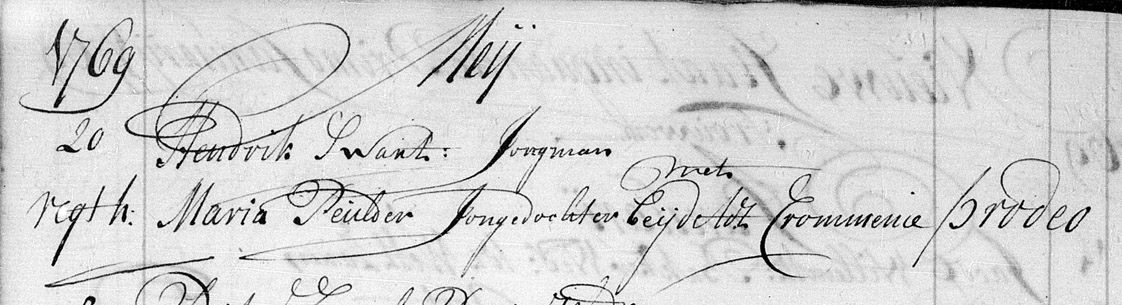 1769 Meij
20 Hendrik Swart: Jongman
met
regth: Maria Peulder Jongedochter beijde tot Crommenie / prodeo